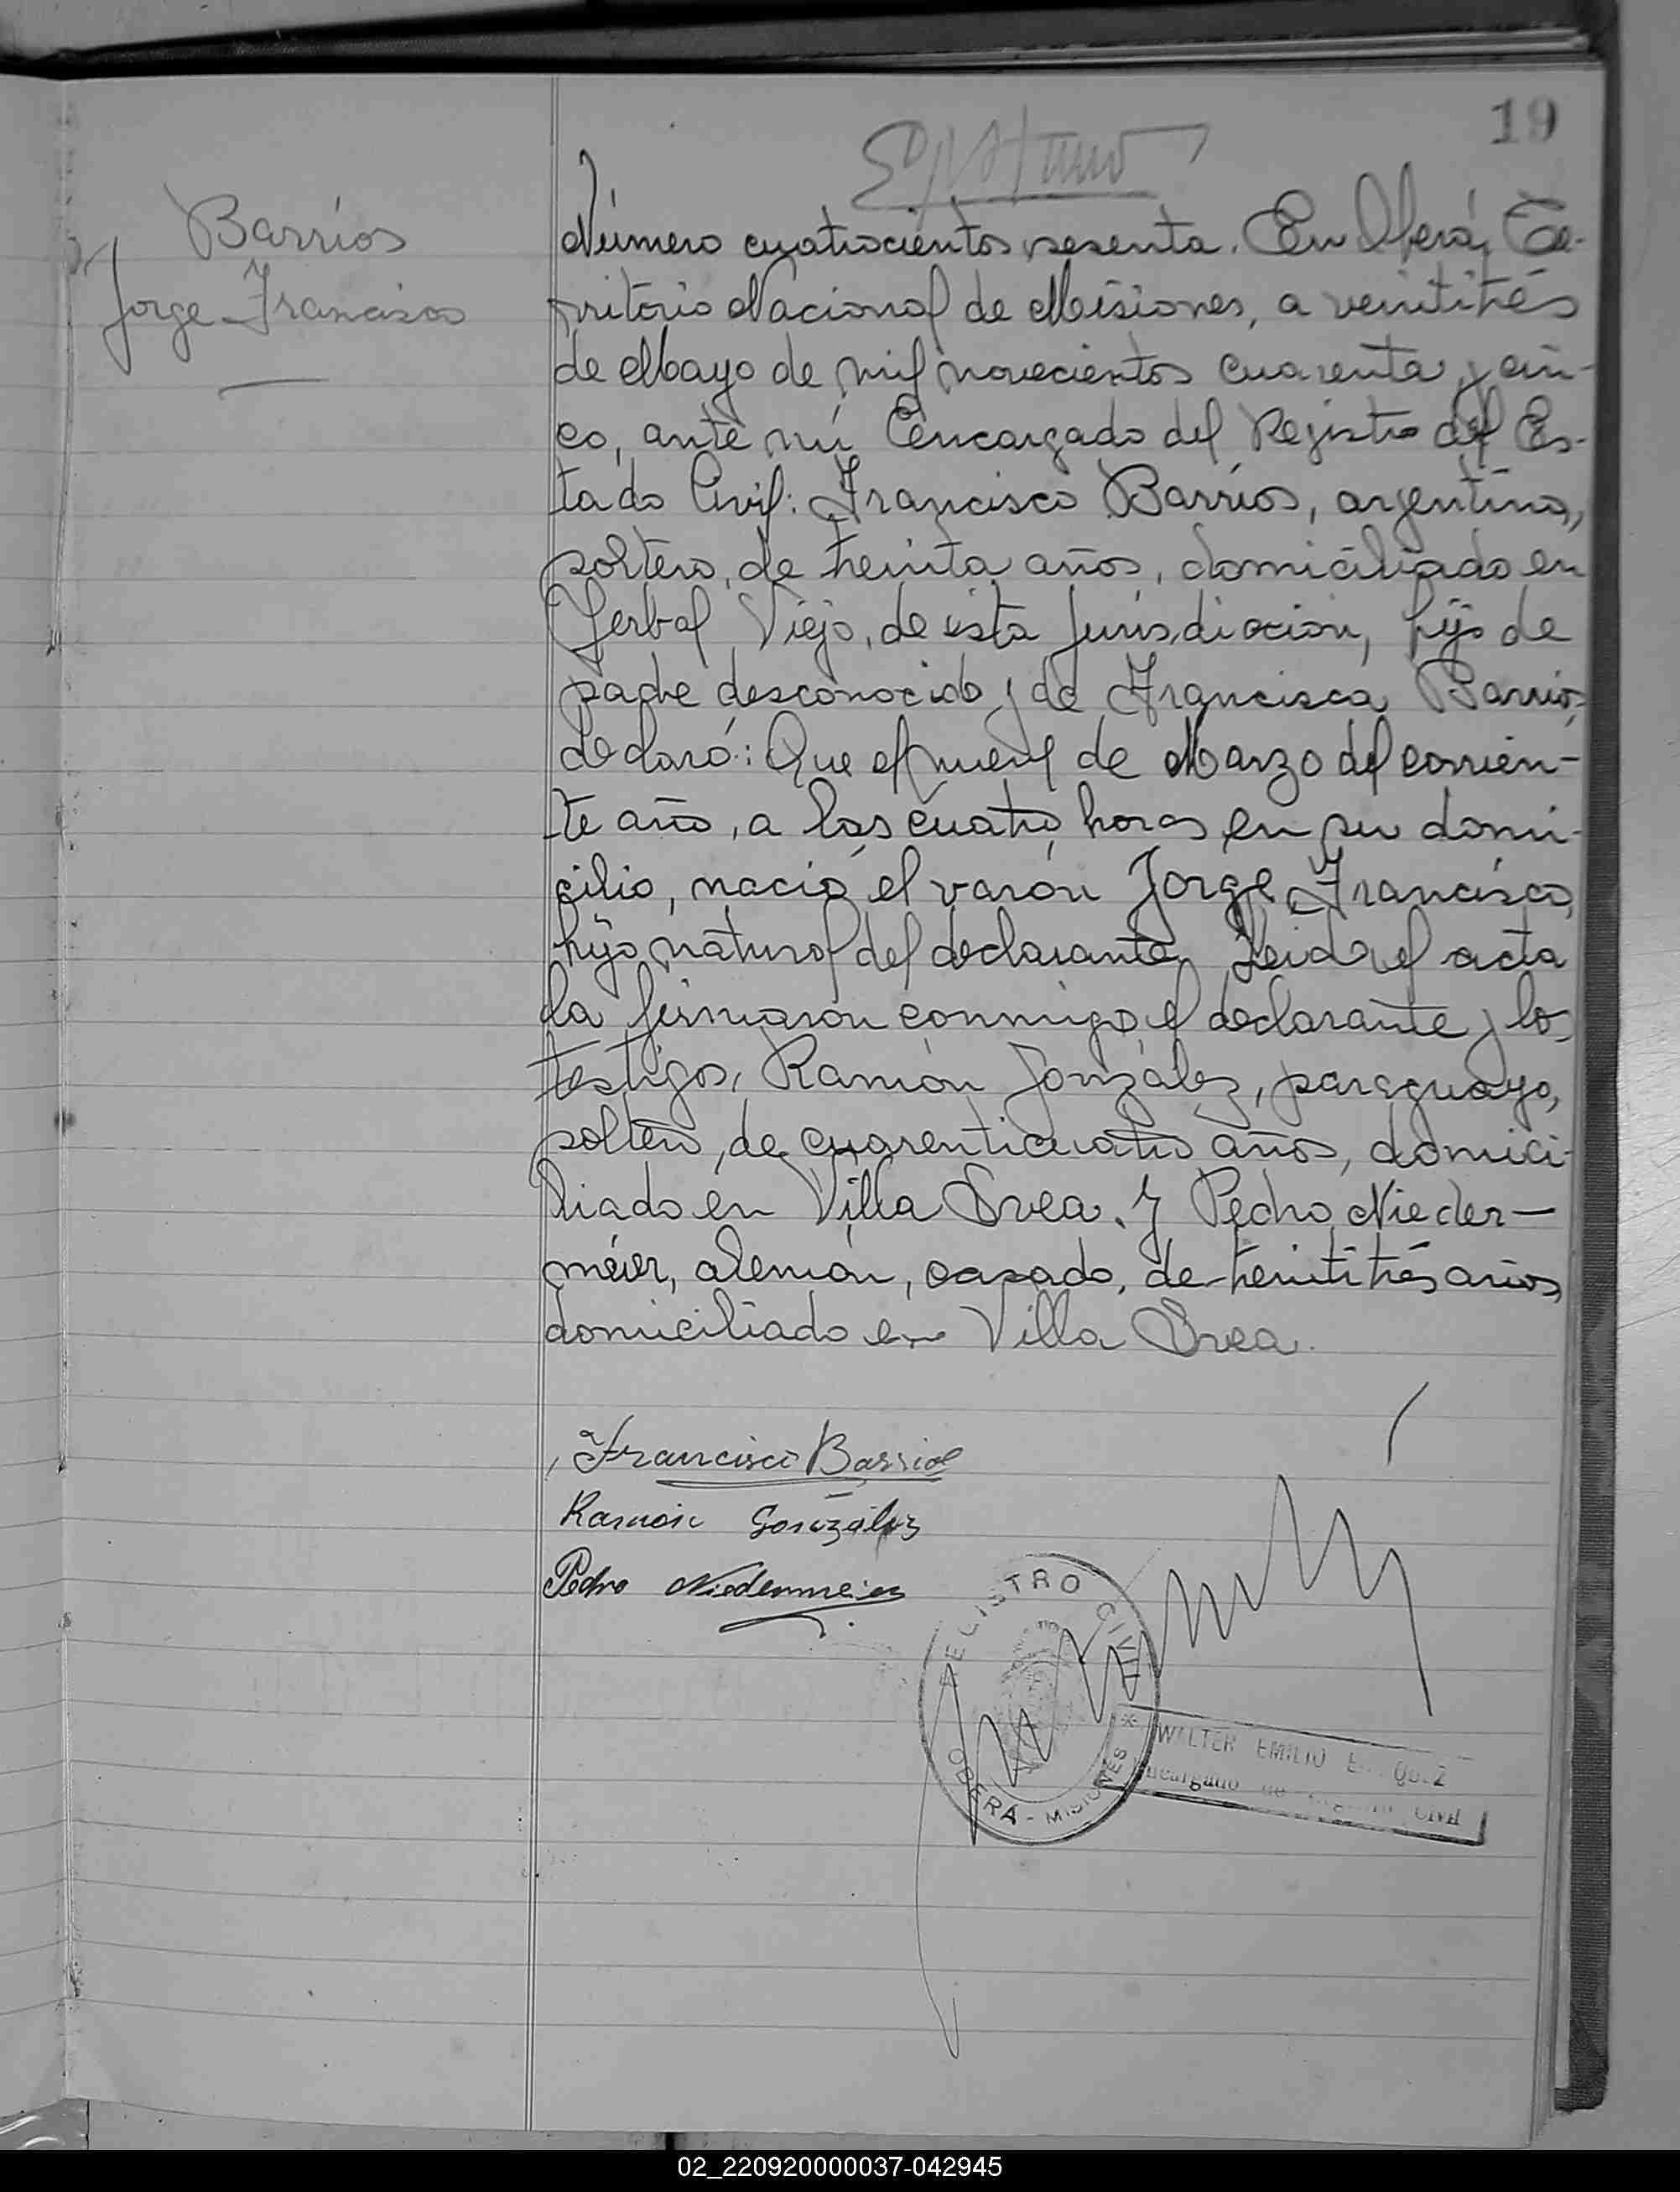 19
Barrios
Jorge Francisco
Número cuatrocientos sesenta. En Oberá, Te-
rritorio Nacional de Misiones, a veintitrés
de Mayo de mil novecientos cuarenta y cin-
co, ante mí Encargado del Registro del Es-
tado Civil: Francisco Barrios, argentino,
soltero, de treinta años, domiciliado en
Yerbal Viejo, de esta jurisdicción, hijo de
padre desconocido y de Francisca Barrios,
declaró: Que el nueve de Marzo del corrien-
te año, a las cuatro horas en su domi-
cilio, nació el varón Jorge Francisco,
hijo natural del declarante. Leida el acta
la firmaron conmigo el declarante y los
testigos, Ramón González, paraguayo,
soltero, de cuarenticuatro años, domici-
liado en Villa Svea. Y Pedro Nieder-
meier, alemán, casado, de treintitrés años,
domiciliado en Villa Svea.
Francisco Barrios
Ramón González
Pedro Niedermeier
REGISTRO CIVIL
OBERÁ - MISIONES
WALTER EMILIO
Encargado Civil
02_220920000037-042945